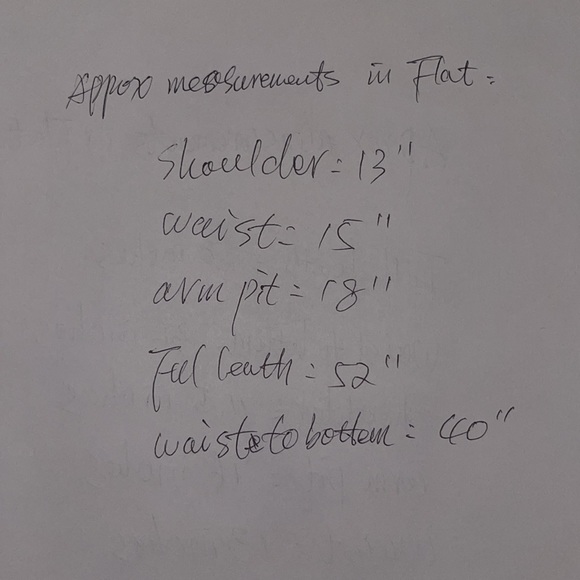 Approx measurements in Flat:
Shoulder: 13"
waist: 15"
arm pit = 18"
Full leath: 52"
waist to bottem: 40"